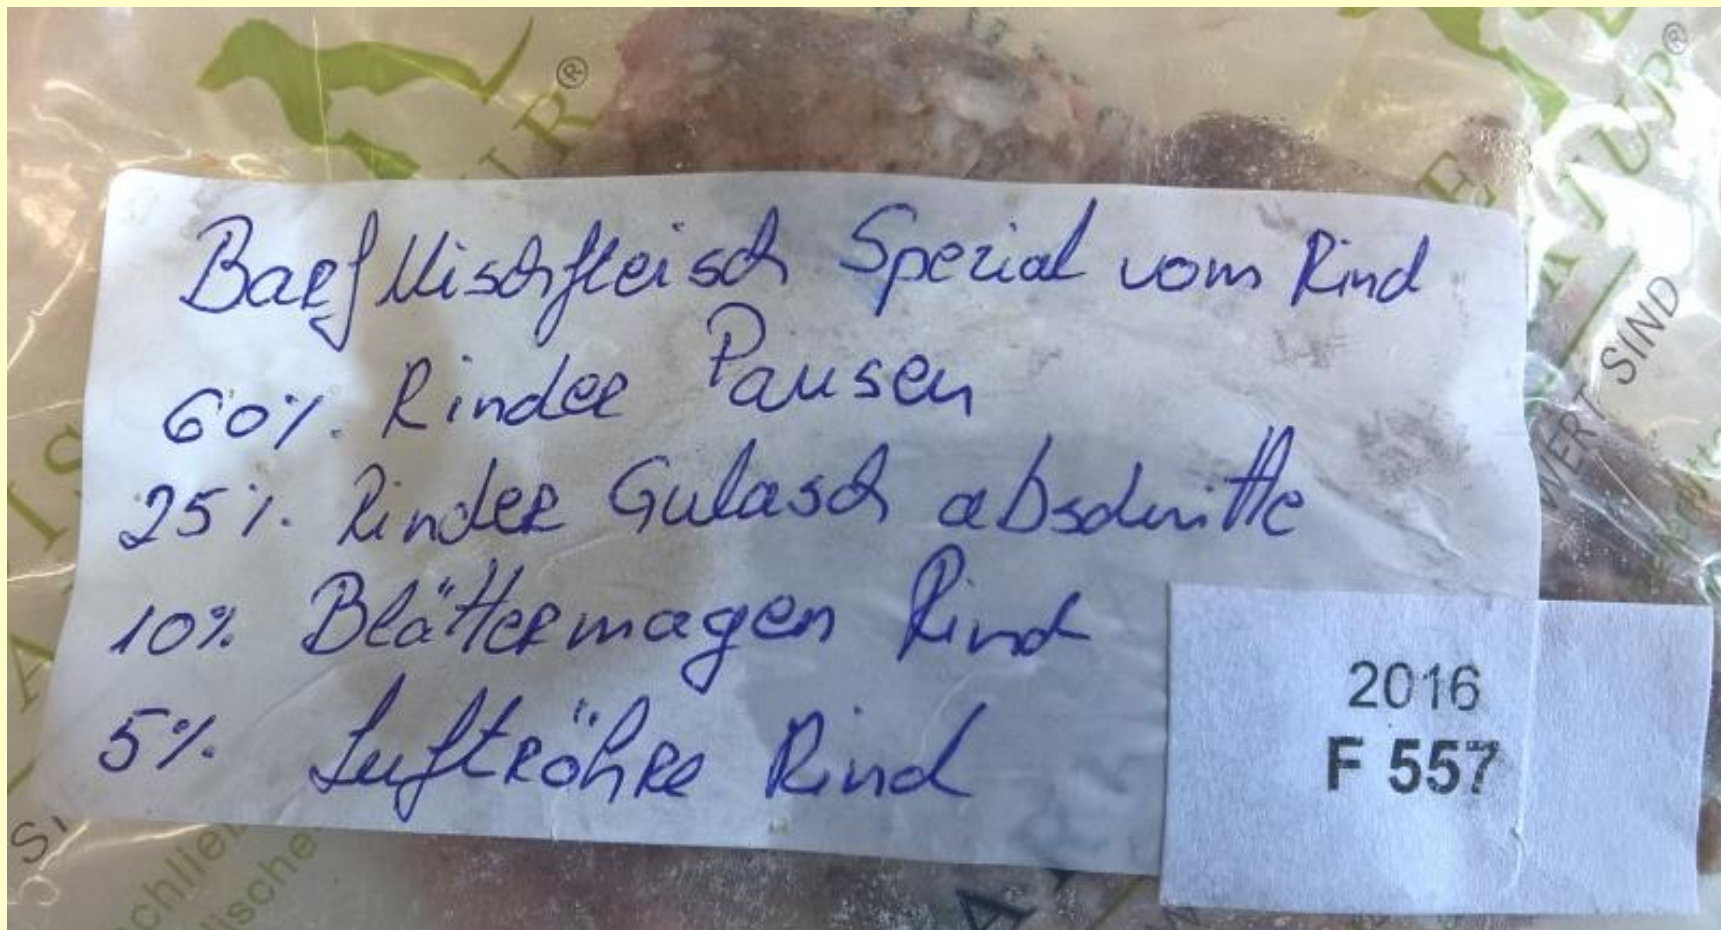 Barf Mischfleisch Spezial vom Rind
60% Rinder Pansen
25% Rinder Gulasch abschnitte
10% Blättermagen Rind
5% Luftröhre Rind
2016
F 557
WERT SIND